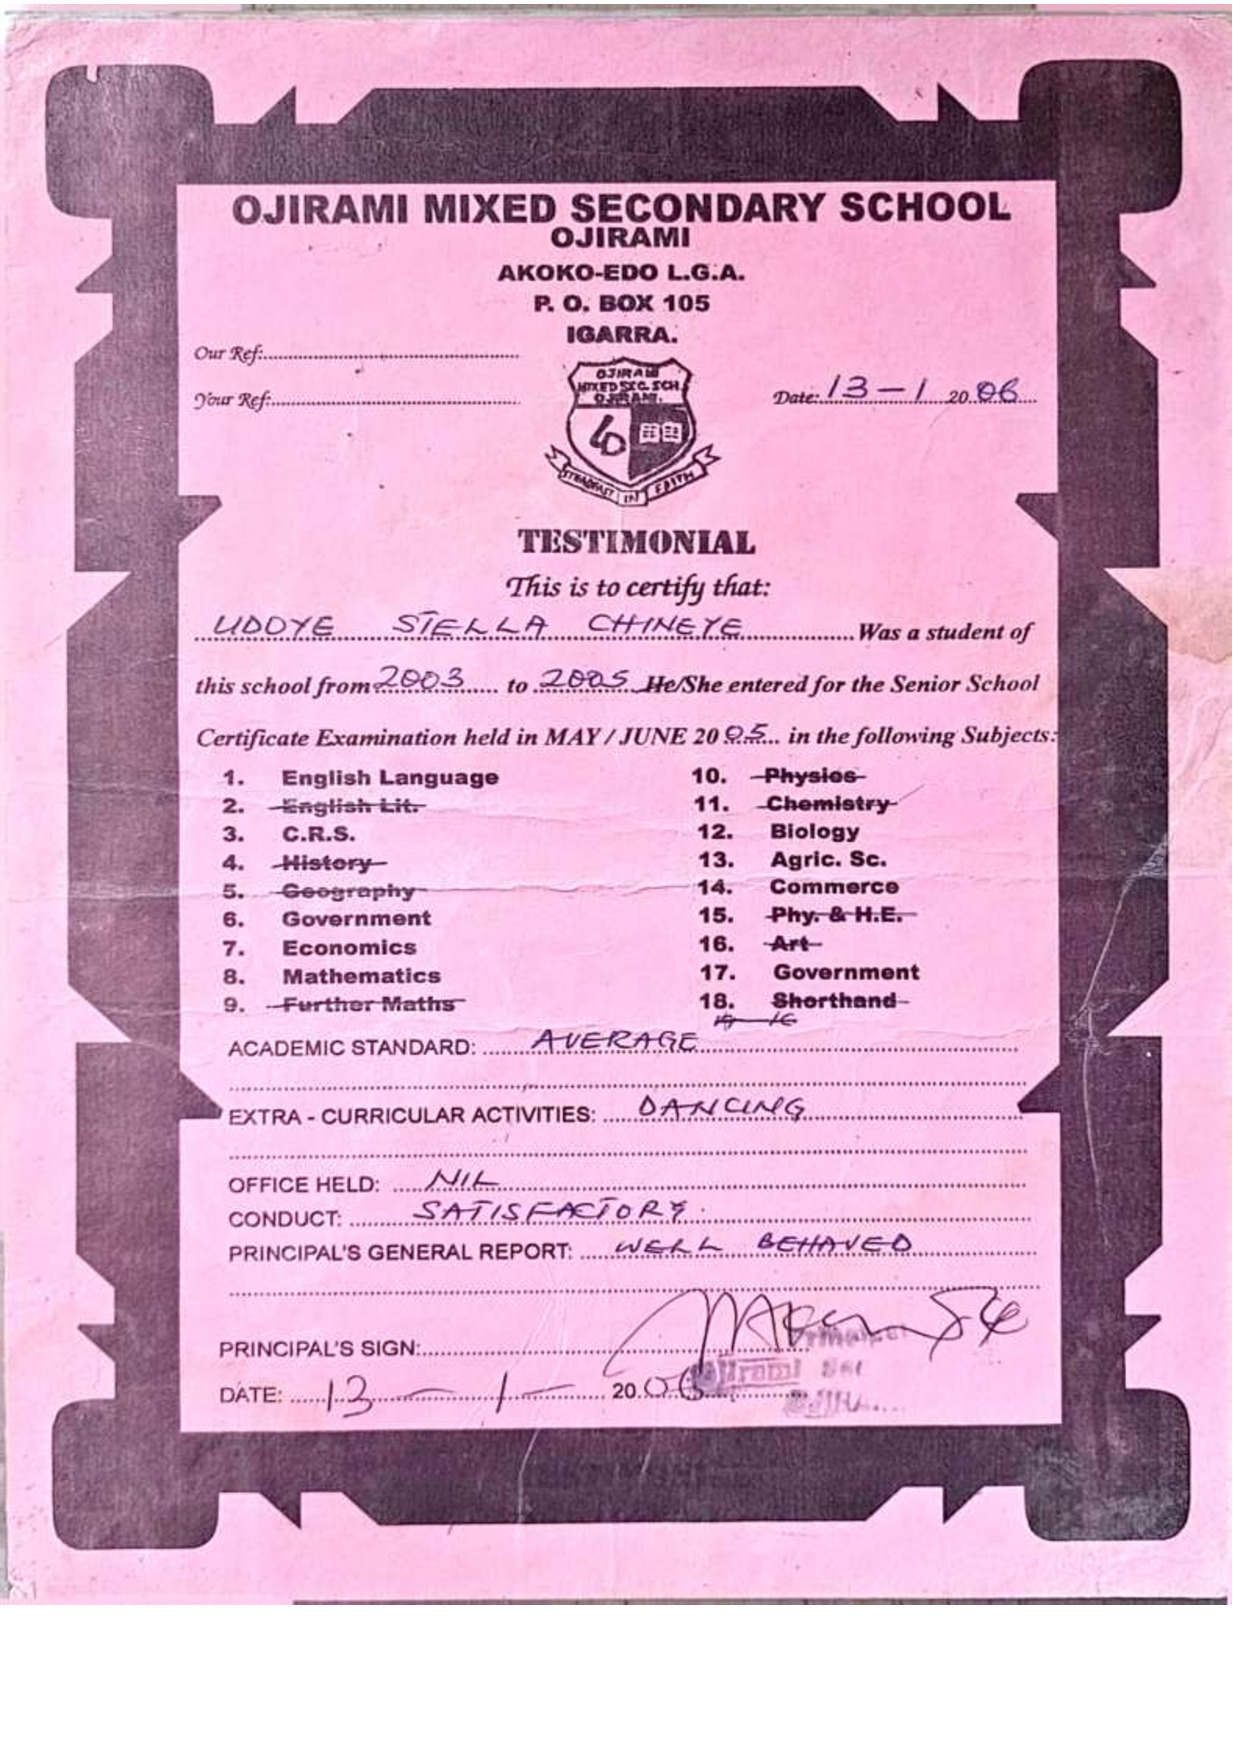 OJIRAMI MIXED SECONDARY SCHOOL
OJIRAMI
AKOKO-EDO L.G.A.
P. O. BOX 105
IGARRA.
Our Ref:
Your Ref:
Date: 13 - 1 2006
OJIRAMI
MIXED SEC. SCH.
OJIRAMI.
STEADFAST IN FAITH
TESTIMONIAL
This is to certify that:
UDOYE STELLA CHINEYE Was a student of
this school from 2003 to 2005 He/She entered for the Senior School
Certificate Examination held in MAY / JUNE 2005 in the following Subjects:
1. English Language
2. English Lit.
3. C.R.S.
4. History
5. Geography
6. Government
7. Economics
8. Mathematics
9. Further Maths
10. Physics
11. Chemistry
12. Biology
13. Agric. Sc.
14. Commerce
15. Phy. & H.E.
16. Art
17. Government
18. Shorthand
ACADEMIC STANDARD: AVERAGE
EXTRA - CURRICULAR ACTIVITIES: DANCING
OFFICE HELD: NIL
CONDUCT: SATISFACTORY.
PRINCIPAL'S GENERAL REPORT: WELL BEHAVED
PRINCIPAL'S SIGN:
Principal
Ojirami Sec
DATE: 13 - 1 - 2006